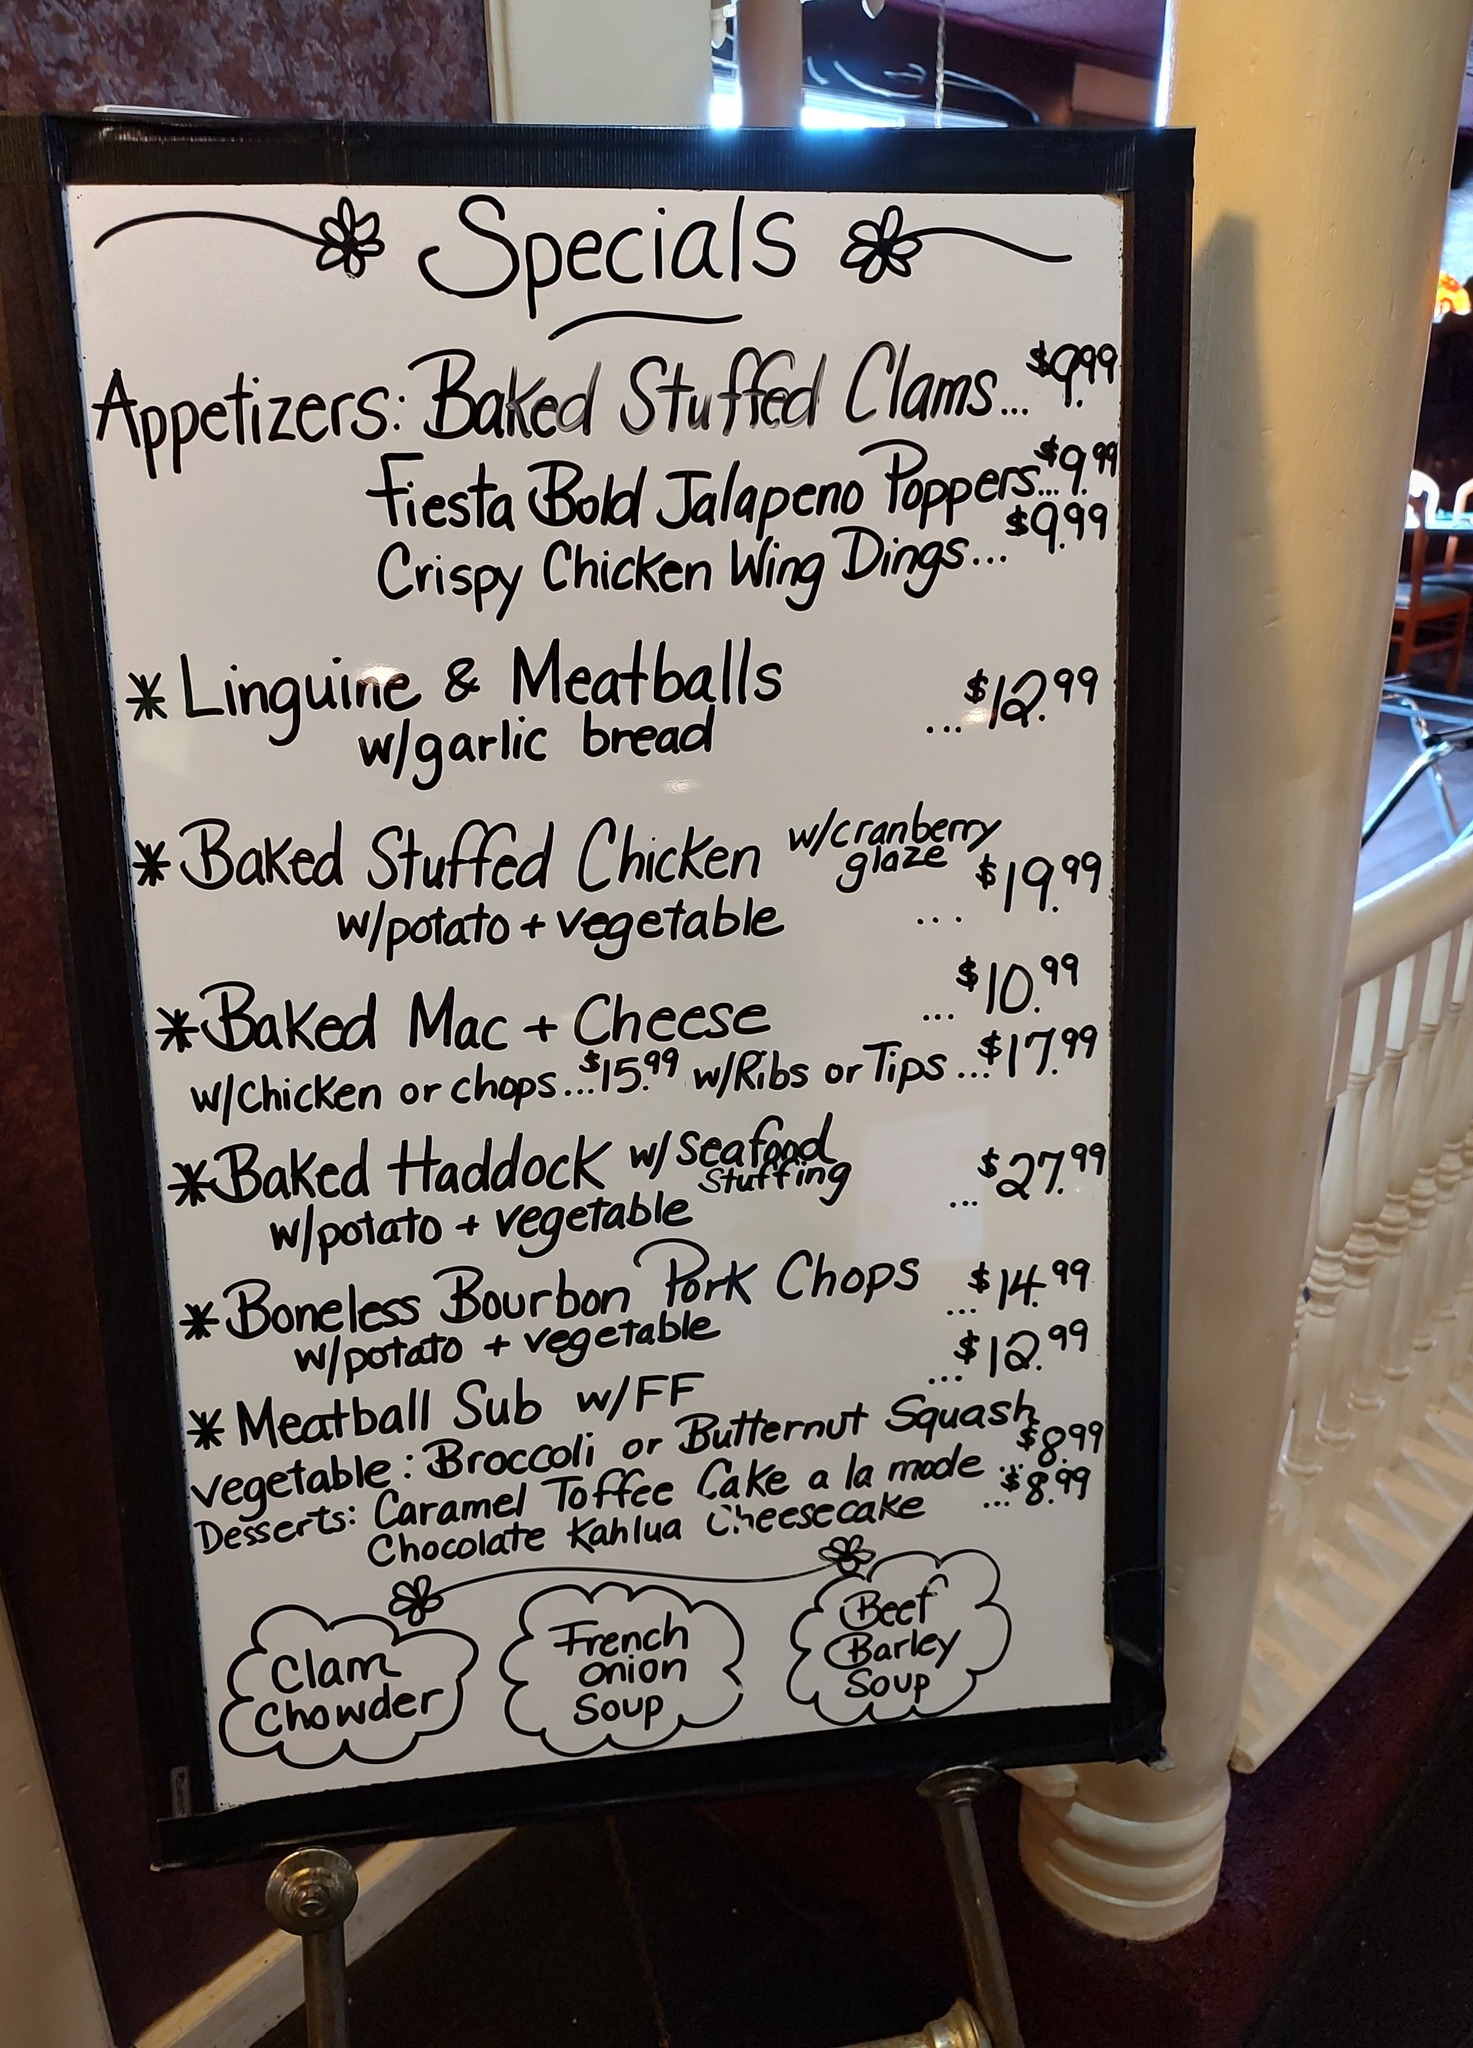 Specials
Appetizers: Baked Stuffed Clams... $9.99
Fiesta Bold Jalapeno Poppers... $9.99
Crispy Chicken Wing Dings... $9.99
* Linguine & Meatballs
w/garlic bread ... $12.99
* Baked Stuffed Chicken w/cranberry glaze
w/potato + vegetable ... $19.99
* Baked Mac + Cheese ... $10.99
w/chicken or chops... $15.99 w/Ribs or Tips ... $17.99
* Baked Haddock w/Seafood Stuffing
w/potato + vegetable ... $27.99
* Boneless Bourbon Pork Chops ... $14.99
w/potato + vegetable
* Meatball Sub w/FF ... $12.99
vegetable: Broccoli or Butternut Squash
Desserts: Caramel Toffee Cake a la mode ... $8.99
Chocolate Kahlua Cheesecake ... $8.99
Clam
Chowder
French
onion
Soup
Beef
Barley
Soup